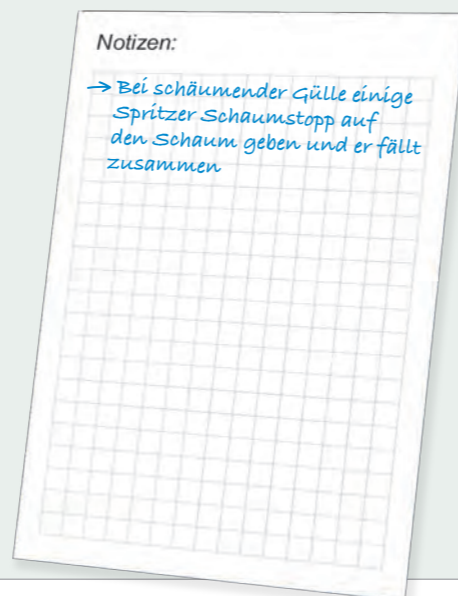 Notizen:
→ Bei schäumender Gülle einige
Spritzer Schaumstopp auf
den Schaum geben und er fällt
zusammen